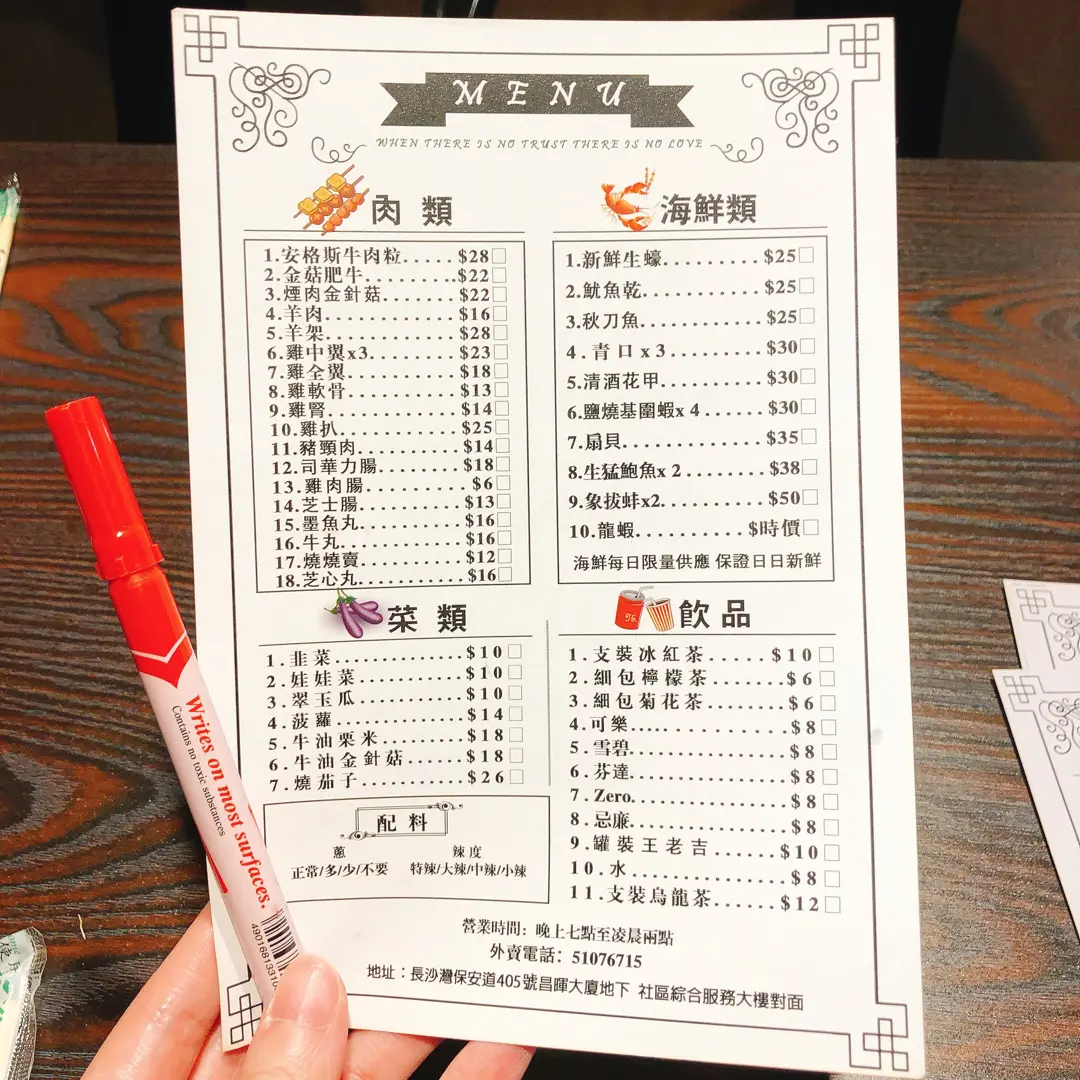 MENU
WHEN THERE IS NO TRUST THERE IS NO LOVE
肉類
1.安格斯牛肉粒.....$28
2.金菇肥牛.........$22
3.煙肉金針菇.......$22
4.羊肉............$16
5.羊架............$28
6.雞中翼x3........$23
7.雞全翼..........$18
8.雞軟骨..........$13
9.雞腎............$14
10.雞扒...........$25
11.豬頸肉.........$14
12.司華力腸.......$18
13.雞肉腸.........$6
14.芝士腸.........$13
15.墨魚丸.........$16
16.牛丸...........$16
17.燒燒賣.........$12
18.芝心丸.........$16
海鮮類
1.新鮮生蠔.........$25
2.魷魚乾...........$25
3.秋刀魚...........$25
4.青口x3.........$30
5.清酒花甲.........$30
6.鹽燒基圍蝦x4.....$30
7.扇貝............$35
8.生猛鮑魚x2.......$38
9.象拔蚌x2........$50
10.龍蝦..........$時價
海鮮每日限量供應 保證日日新鮮
菜類
1.韭菜............$10
2.娃娃菜..........$10
3.翠玉瓜..........$10
4.菠蘿............$14
5.牛油栗米........$18
6.牛油金針菇......$18
7.燒茄子..........$26
飲品
1.支裝冰紅茶.....$10
2.細包檸檬茶......$6
3.細包菊花茶......$6
4.可樂............$8
5.雪碧............$8
6.芬達............$8
7.Zero............$8
8.忌廉............$8
9.罐裝王老吉.....$10
10.水.............$8
11.支裝烏龍茶.....$12
配料
蔥 辣度
正常/多/少/不要 特辣/大辣/中辣/小辣
營業時間：晚上七點至凌晨兩點
外賣電話：51076715
地址：長沙灣保安道405號昌暉大廈地下 社區綜合服務大樓對面
Writes on most surfaces.
Contains no toxic substances
49016813310